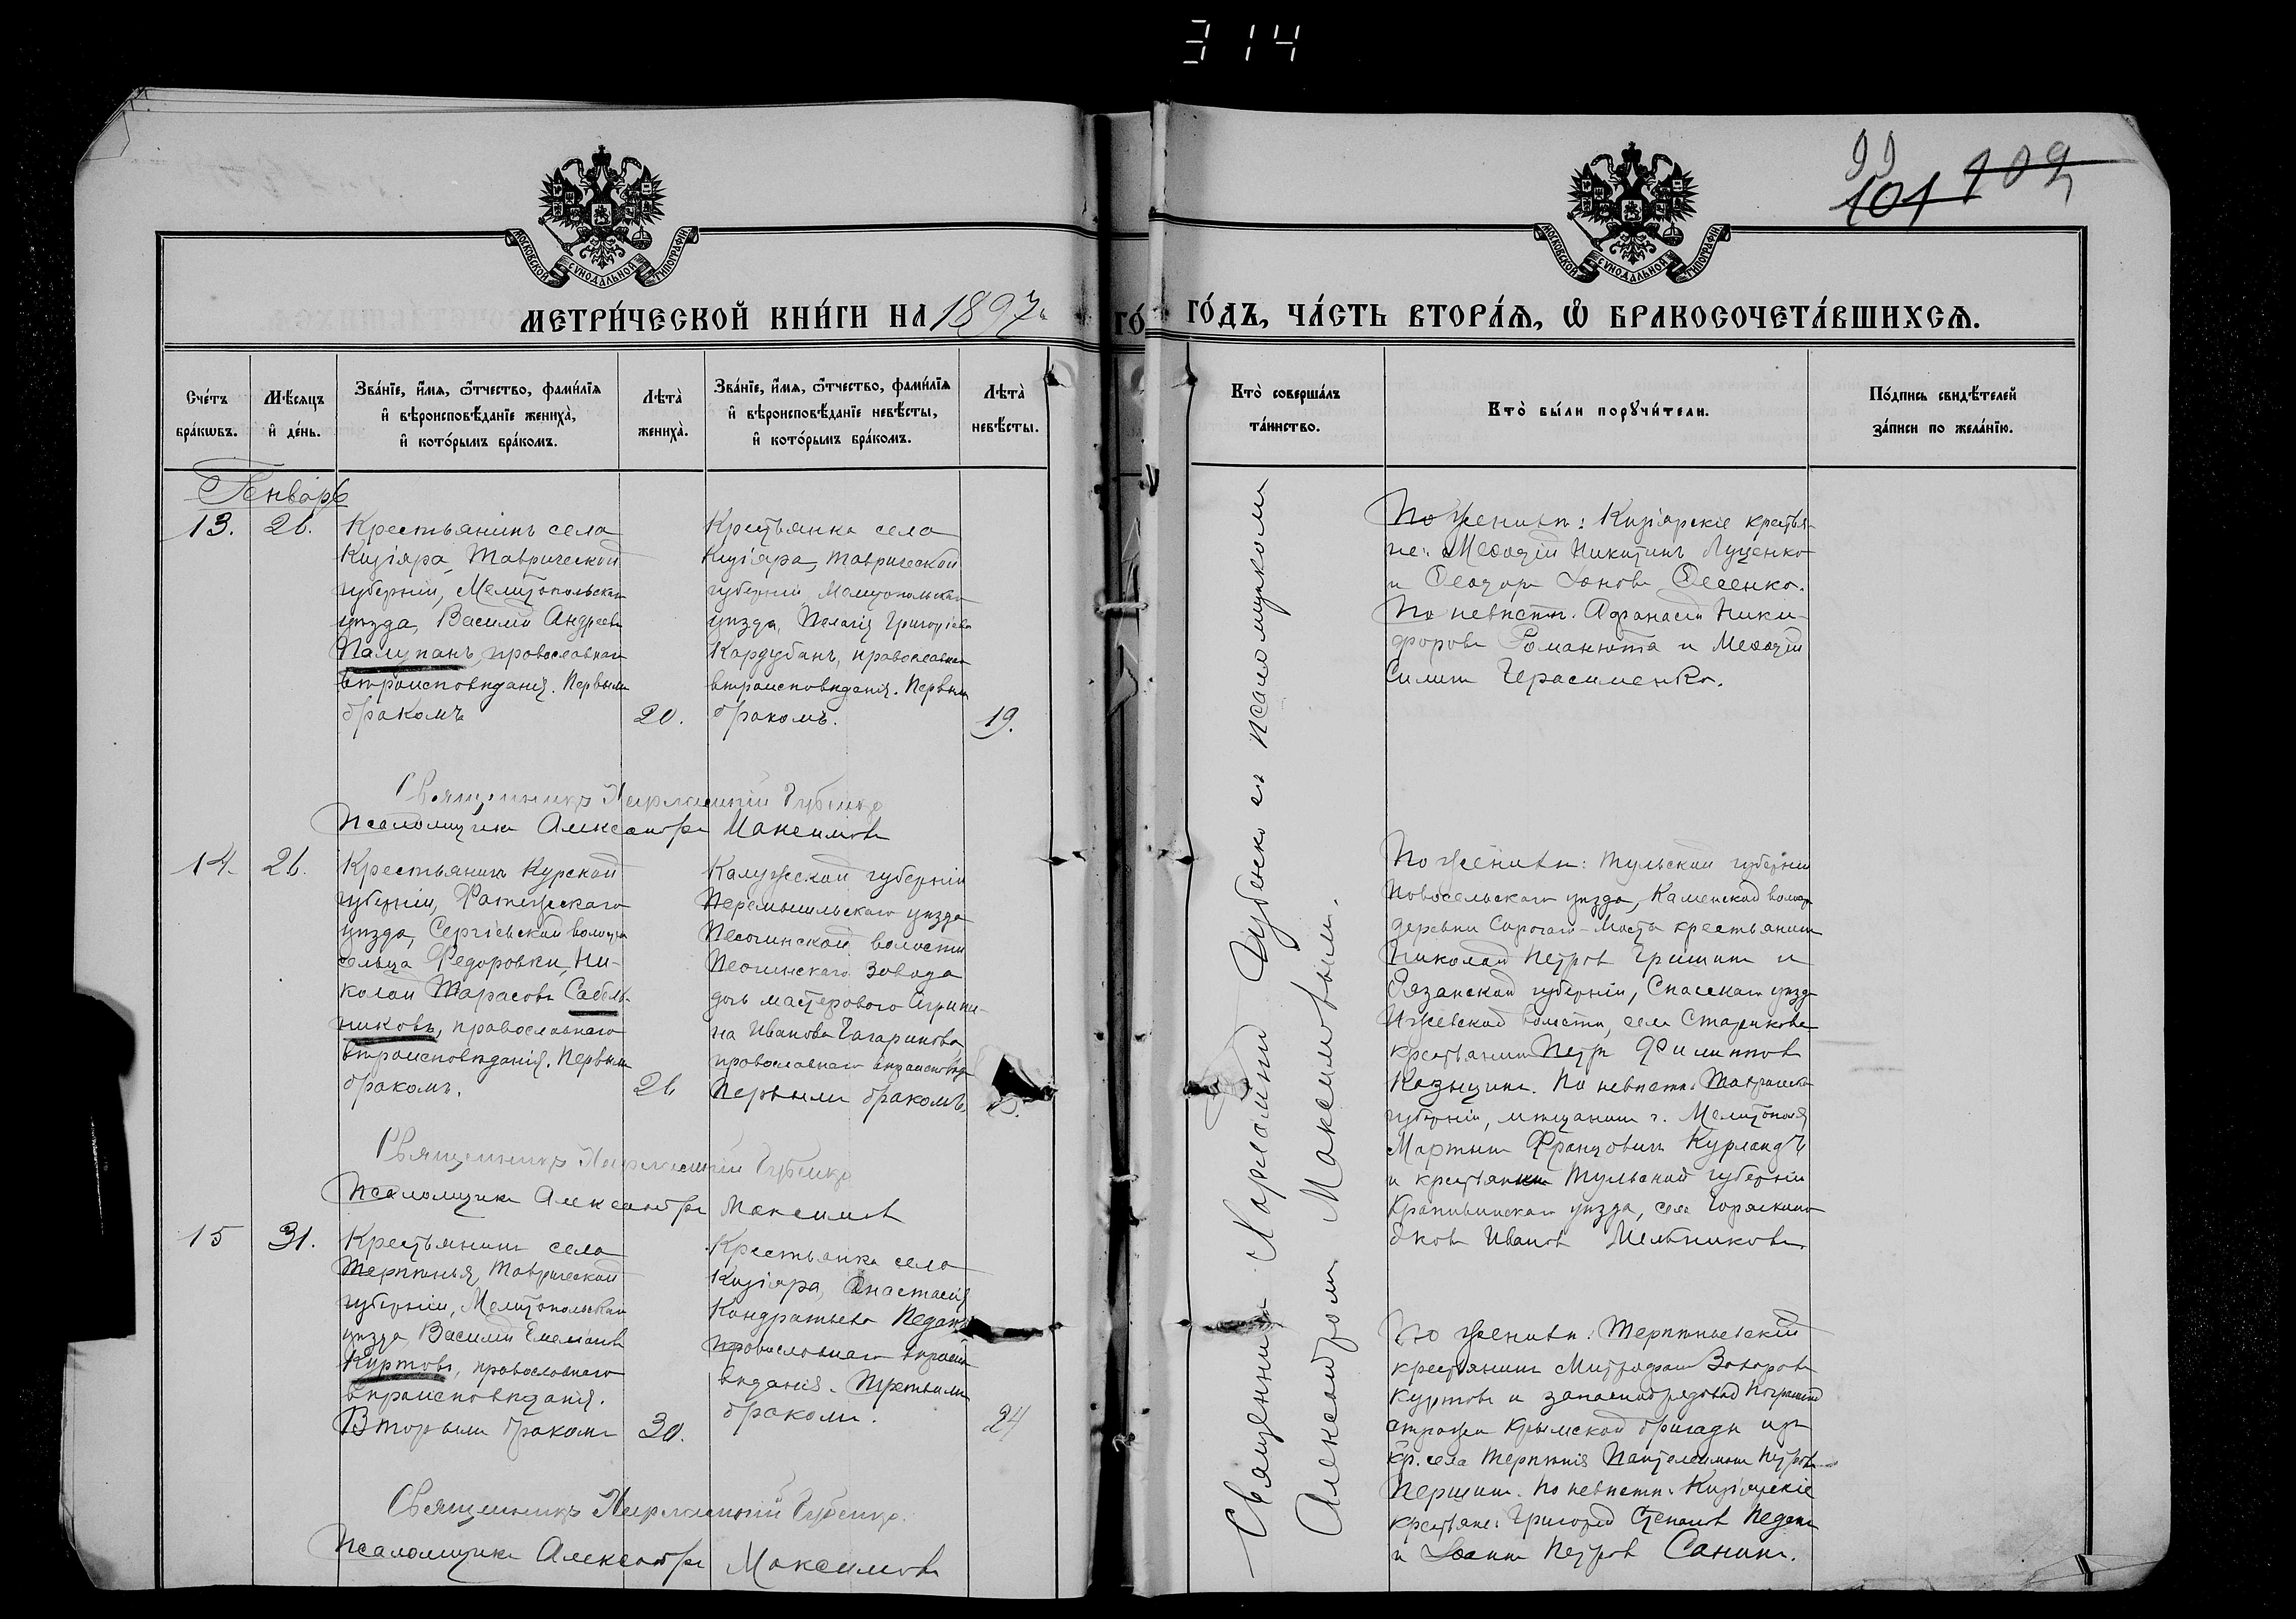 314
99
101 102
МОСКОВСКОЙ СѴНОДАЛЬНОЙ ТИПОГРАФІИ
МОСКОВСКОЙ СѴНОДАЛЬНОЙ ТИПОГРАФІИ
МЕТРИ́ЧЕСКОЙ КНИ́ГИ НА 1897
ГО́ДЪ, ЧА́СТЬ ВТОРА́Ѧ, Ѽ БРАКОСОЧЕТА́ВШИХСѦ.
Сче́тъ бра́кѡвъ.
Мѣ́сѧцъ и҆ де́нь.
Зва́нїе, и҆́мѧ, ѻ҆́тчество, фами́лїѧ и҆ вѣроисповѣ́данїе жениха̀, и҆ кото́рымъ бра́комъ.
Лѣта̀ жениха̀.
Зва́нїе, и҆́мѧ, ѻ҆́тчество, фами́лїѧ и҆ вѣроисповѣ́данїе невѣ́сты, и҆ кото́рымъ бра́комъ.
Лѣта̀ невѣ́сты.
Кто̀ соверша́лъ та́инство.
Кто̀ бы́ли порꙋчи́тели.
По́дпись свидѣ́телей за́писи по жела́нїю.
Генварь
13.
26.
Крестьянинъ села
Кизіяра, Таврической
губерніи, Мелитопольскаго
уѣзда, Василій Андреевъ
Палупанъ, православнаго
вѣроисповѣданія. Первымъ
бракомъ
20.
Крестьянка села
Кизіяра, Таврической
губерніи, Мелитопольскаго
уѣзда, Пелагія Григоріева
Кардубанъ, православнаго
вѣроисповѣданія. Первымъ
бракомъ.
19.
Священникъ Харлампій Губенко съ псаломщикомъ
Александромъ Максимовымъ.
По женихѣ: Кизіярскіе крестья-
не: Меѳодій Никитинъ Луценко
и Ѳеодоръ
По невѣстѣ: Афанасій Ники-
форовъ Романюта и Меѳодій
Силинъ Герасименко.
Священникъ Харлампій Губенко
Псаломщикъ Александръ Максимовъ
14.
26.
Крестьянинъ Курской
губерніи, Фатежскаго
уѣзда, Сергіевской волости
сельца Федоровки, Ни-
колай Тарасовъ Сабель-
никовъ, православнаго
вѣроисповѣданія. Первымъ
бракомъ.
26
Калужской губерніи
Перемышльскаго уѣзда
Песоченской волости
завода
дочь мастерового Агрипи-
на Иванова Гагаринова
православнаго вѣроисповѣд.
Первымъ бракомъ
По женихѣ: Тульской губерніи
Новосельскаго уѣзда, Каменской волости
деревни крестьянинъ
Николай Петровъ Гришинъ и
Рязанской губерніи, Спасскаго уѣзда
Ижевской волости, села Старикова
крестьянинъ Петръ Филипповъ
Казицинъ. По невѣстѣ: Таврической
губерніи, мѣщанинъ г. Мелитополя
Мартынъ Францовичъ Курландъ
и крестьянинъ Тульской губерніи
Крапивинскаго уѣзда, села
Яковъ Ивановъ Мельниковъ.
Священникъ Харлампій Губенко
Псаломщикъ Александръ Максимовъ
15
31.
Крестьянинъ села
Терпѣнья, Таврической
губерніи, Мелитопольскаго
уѣзда, Василій Емеліановъ
Куртовъ, православнаго
вѣроисповѣданія.
Вторымъ бракомъ
30.
Крестьянка села
Кизіяра, Анастасія
Кондратьева Педанъ
православнаго вѣроиспо-
вѣданія. Третьимъ
бракомъ.
24
По женихѣ: Терпѣньевскій
крестьянинъ Митрофанъ Захаровъ
Куртовъ и запасный рядовой Пограничной
стражи Крымской бригады изъ
кр. села Терпѣнія Пантелеимонъ Петровъ
Першинъ. По невѣстѣ: Кизіярскіе
крестьяне: Григорій Степановъ Педанъ
и Іоаннъ Петровъ Санинъ.
Священникъ Харлампій Губенко.
Псаломщикъ Александръ Максимовъ